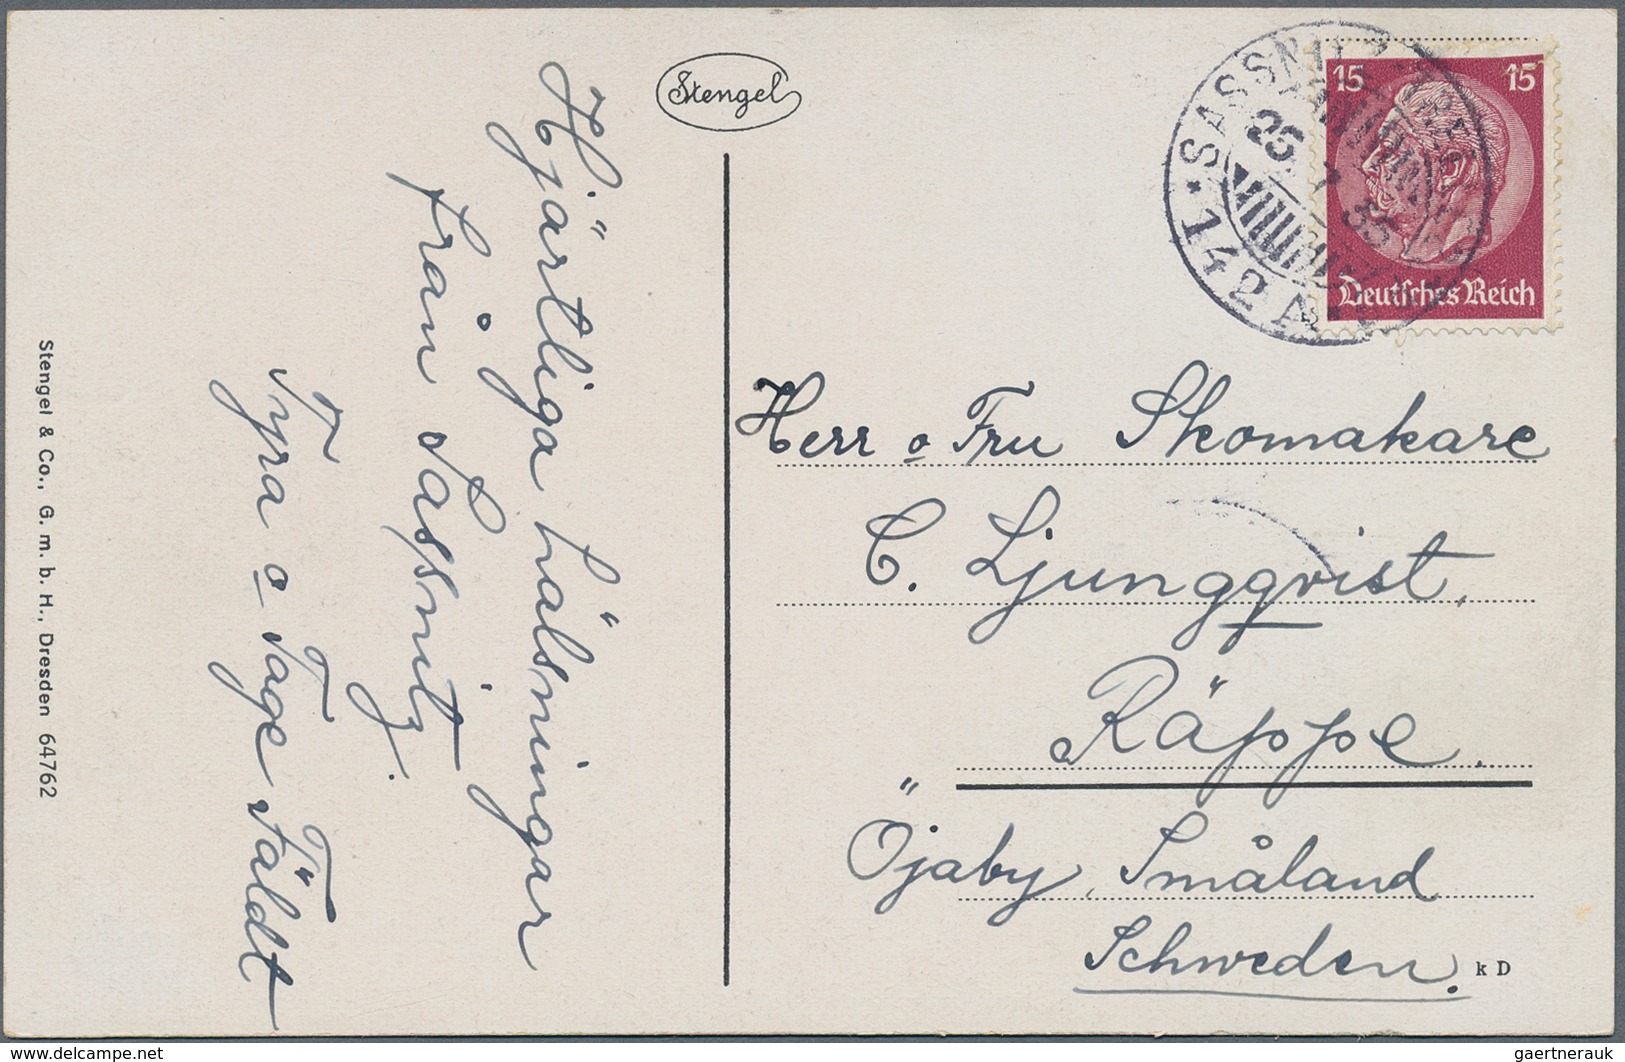 Stengel
Hjärtliga hälsningar
från Sassnitz.
Tyra o Tage Fäldt
Stengel & Co., G. m. b. H., Dresden 64762
15 15
Deutsches Reich
142 A
35
Herr o Fru Skomakare
C. Ljungqvist,
Räppe.
Öjaby, Småland
Schweden.
k D
www.delcampe.net
gaertnerauk